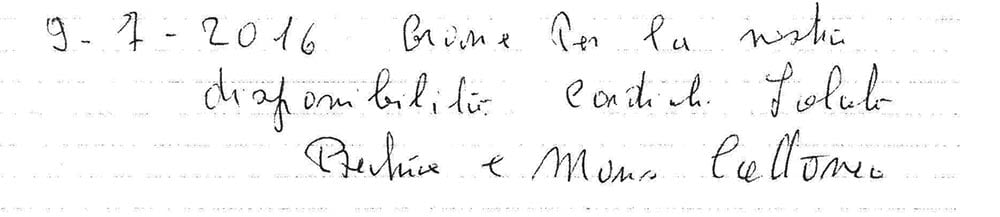 9-7-2016 Grazie Per la vostra
disponibilità. Cordiali Saluti
e Mauro Cattaneo